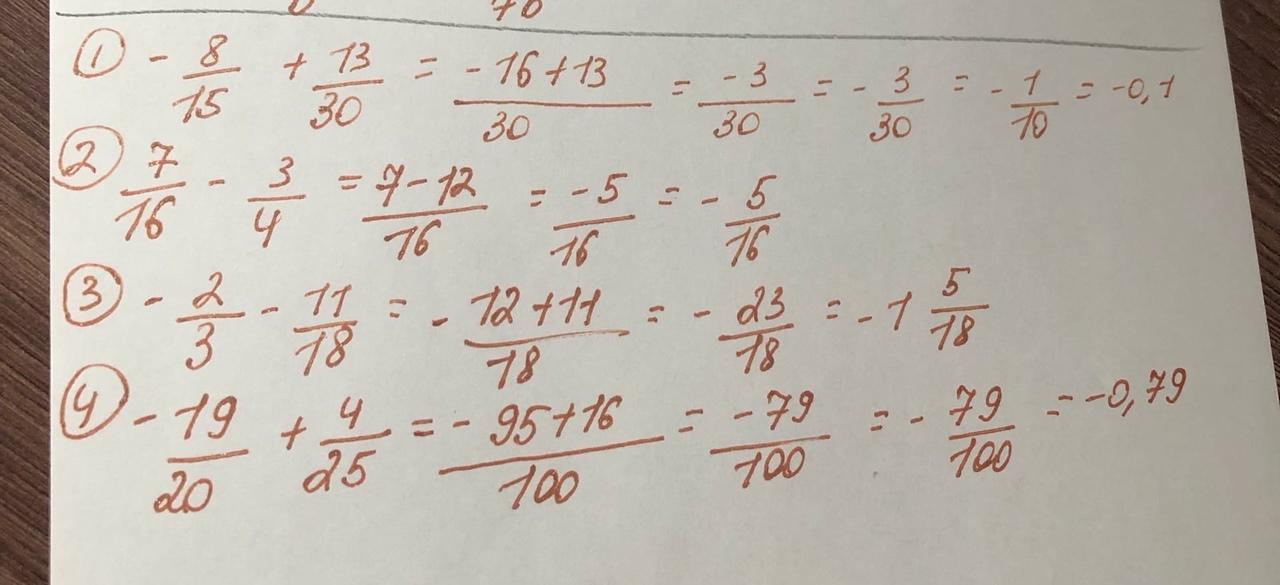 ① - 8/15 + 13/30 = -16+13/30 = -3/30 = - 3/30 = - 1/10 = -0,1
② 7/16 - 3/4 = 7-12/16 = -5/16 = - 5/16
③ - 2/3 - 11/18 = - 12+11/18 = - 23/18 = -1 5/18
④ - 19/20 + 4/25 = -95+16/100 = -79/100 = - 79/100 = -0,79